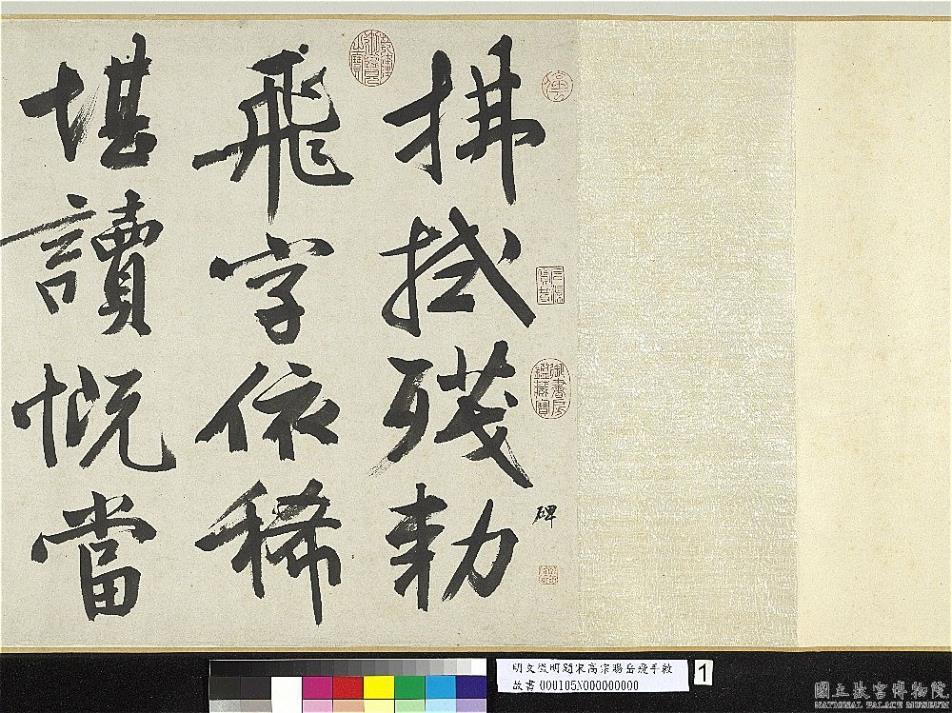 拂拭殘勅
碑
飛字依稀
堪讀慨當
明文徵明題宋高宗賜岳飛手敕
故書000105N000000000
1
國立故宮博物院
NATIONAL PALACE MUSEUM